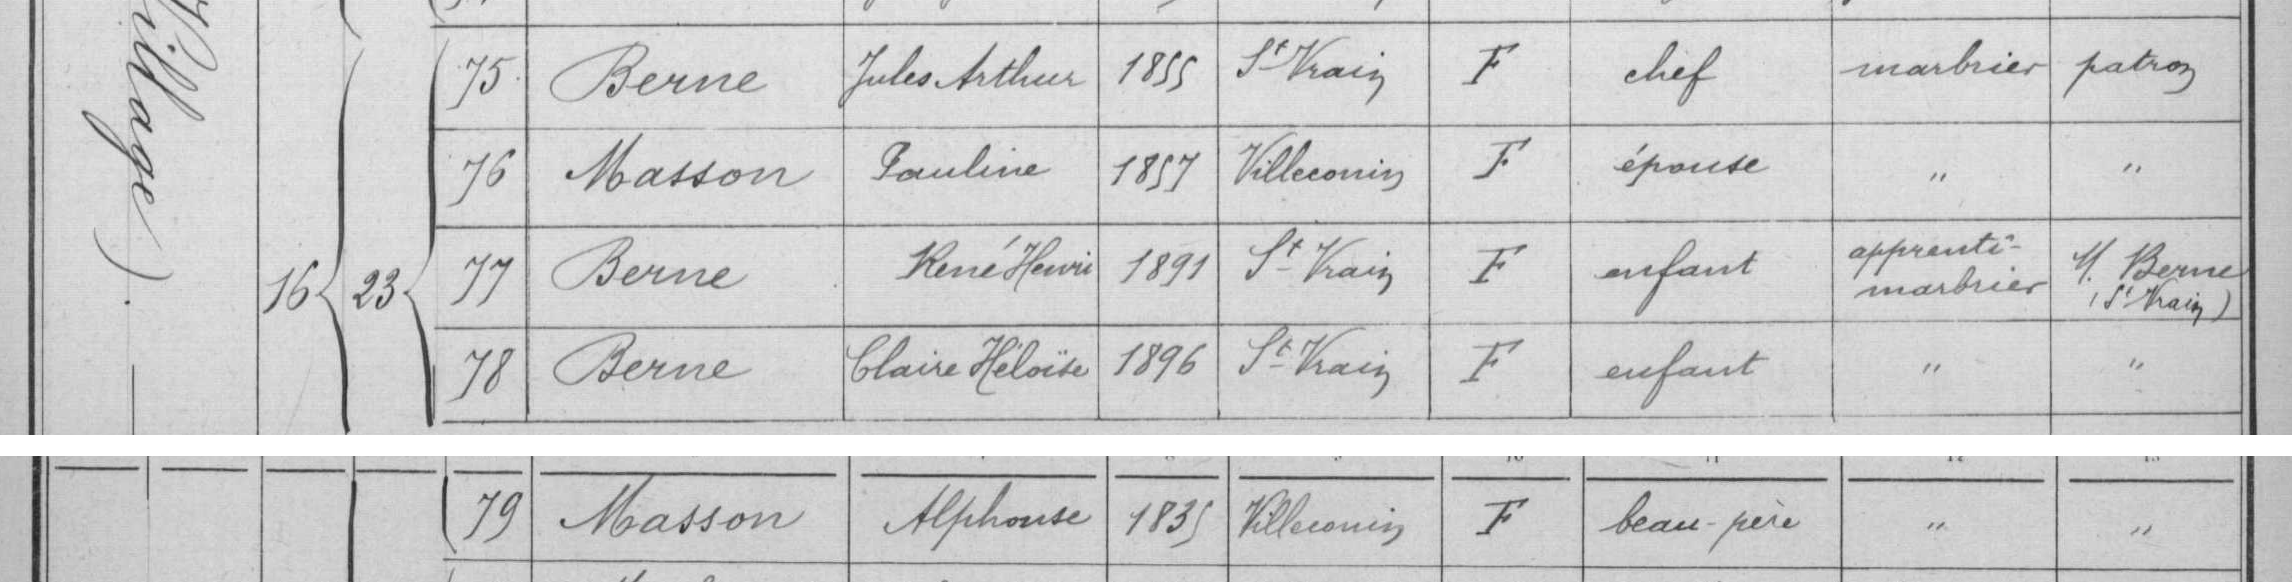 Village)
16 23
75 Berne Jules Arthur 1855 St Vrain F chef marbrier patron
76 Masson Pauline 1857 Villeconin F épouse " "
77 Berne René Henri 1891 St Vrain F enfant apprenti- marbrier M. Berne (St Vrain)
78 Berne Claire Héloïse 1896 St Vrain F enfant " "
79 Masson Alphonse 1835 Villeconin F beau-père " "